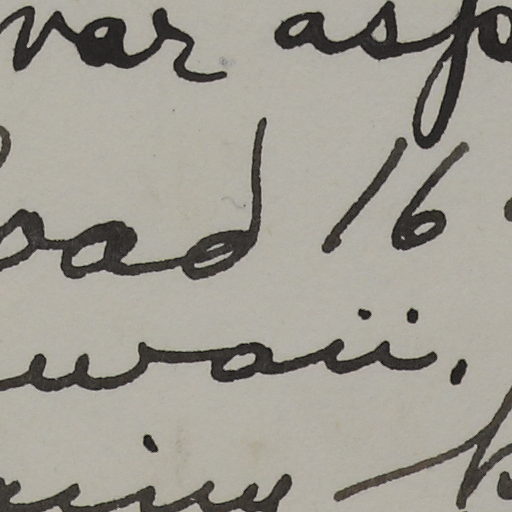 var asp
oad 16
waii.